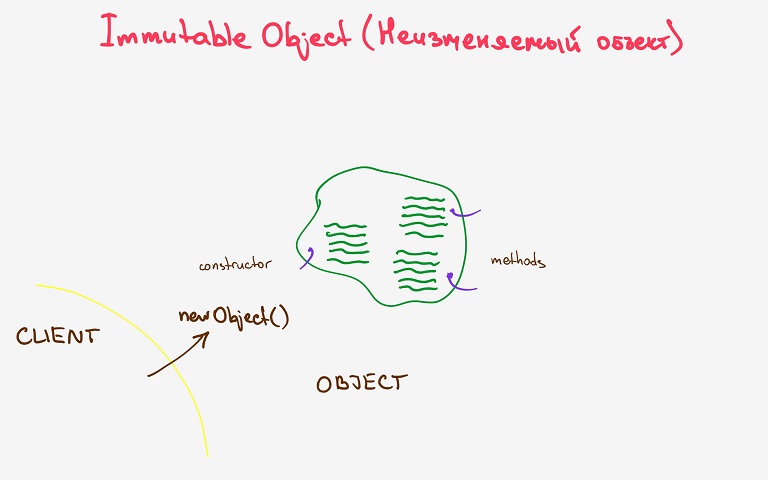 Immutable Object (Неизменяемый объект)
constructor
methods
new Object()
CLIENT
OBJECT